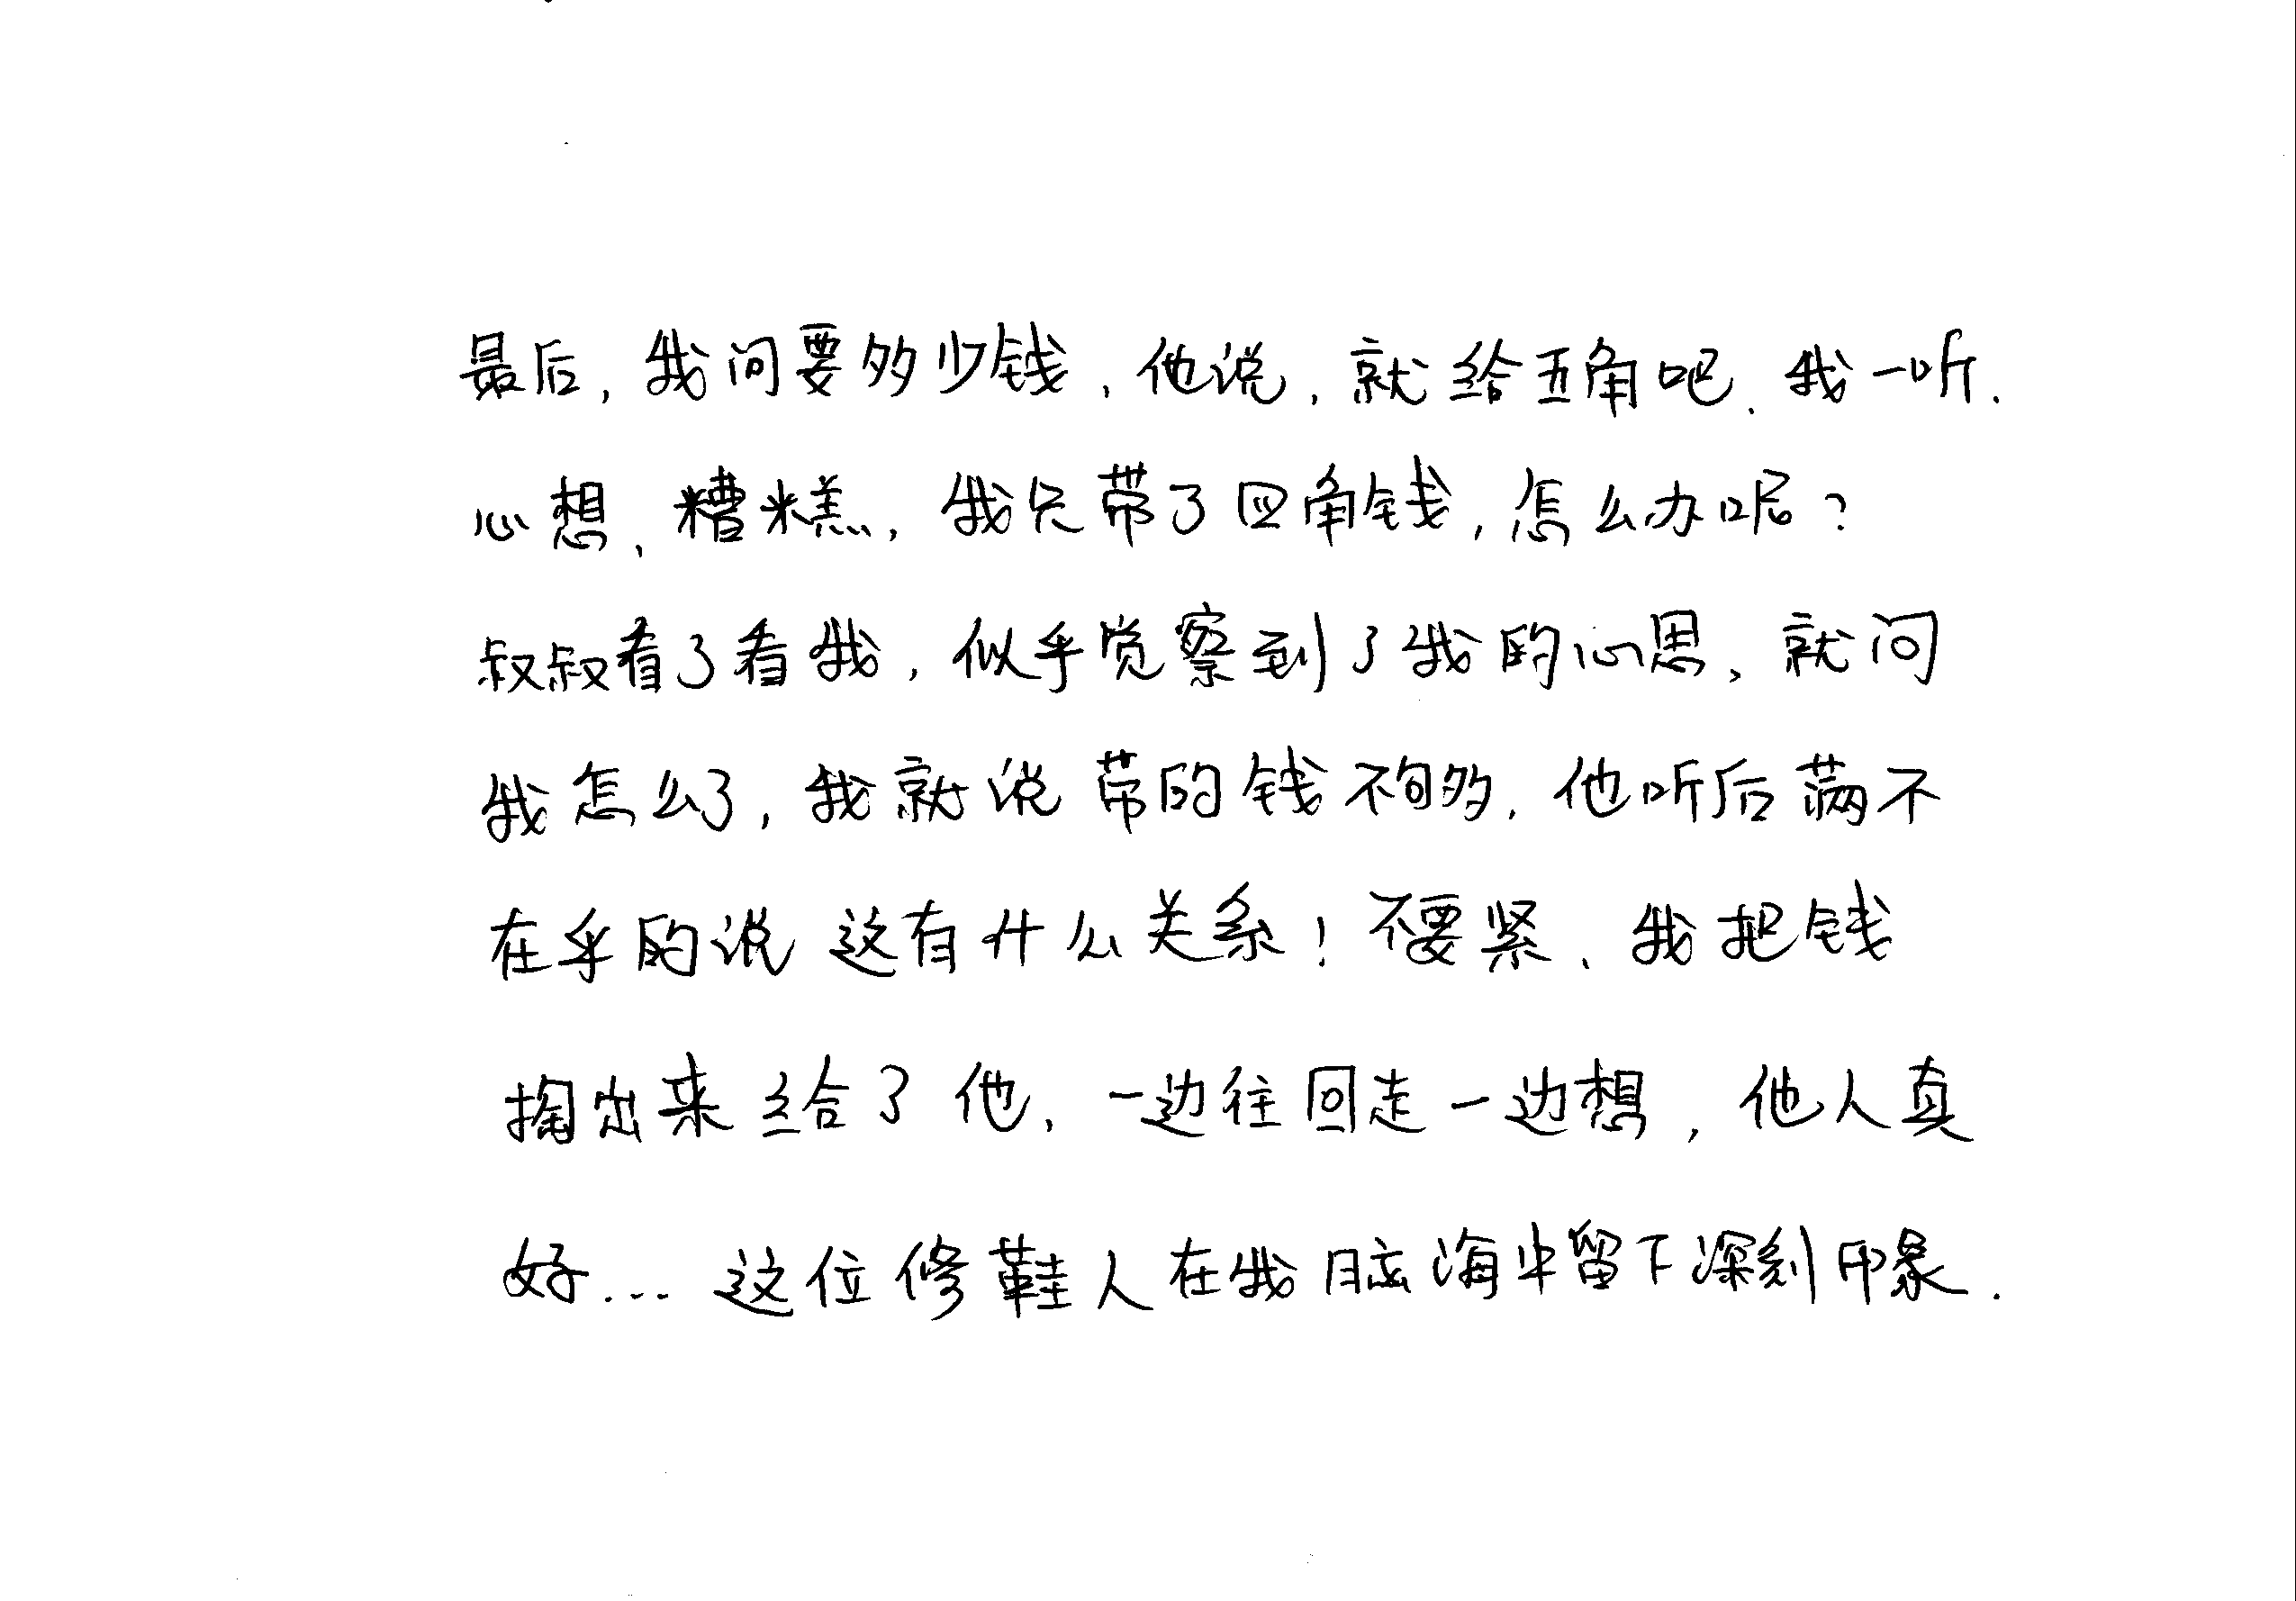 最后，我问要多少钱，他说，就给五角吧、我一听.
心想、糟糕，我只带了四角钱，怎么办呢？
叔叔看了看我，似乎觉察到了我的心思、就问
我怎么了，我就说带的钱不够，他听后满不
在乎的说 这有什么关系！不要紧、我把钱
掏出来给了他，一边往回走一边想，他人真
好... 这位修鞋人在我脑海中留下深刻印象.